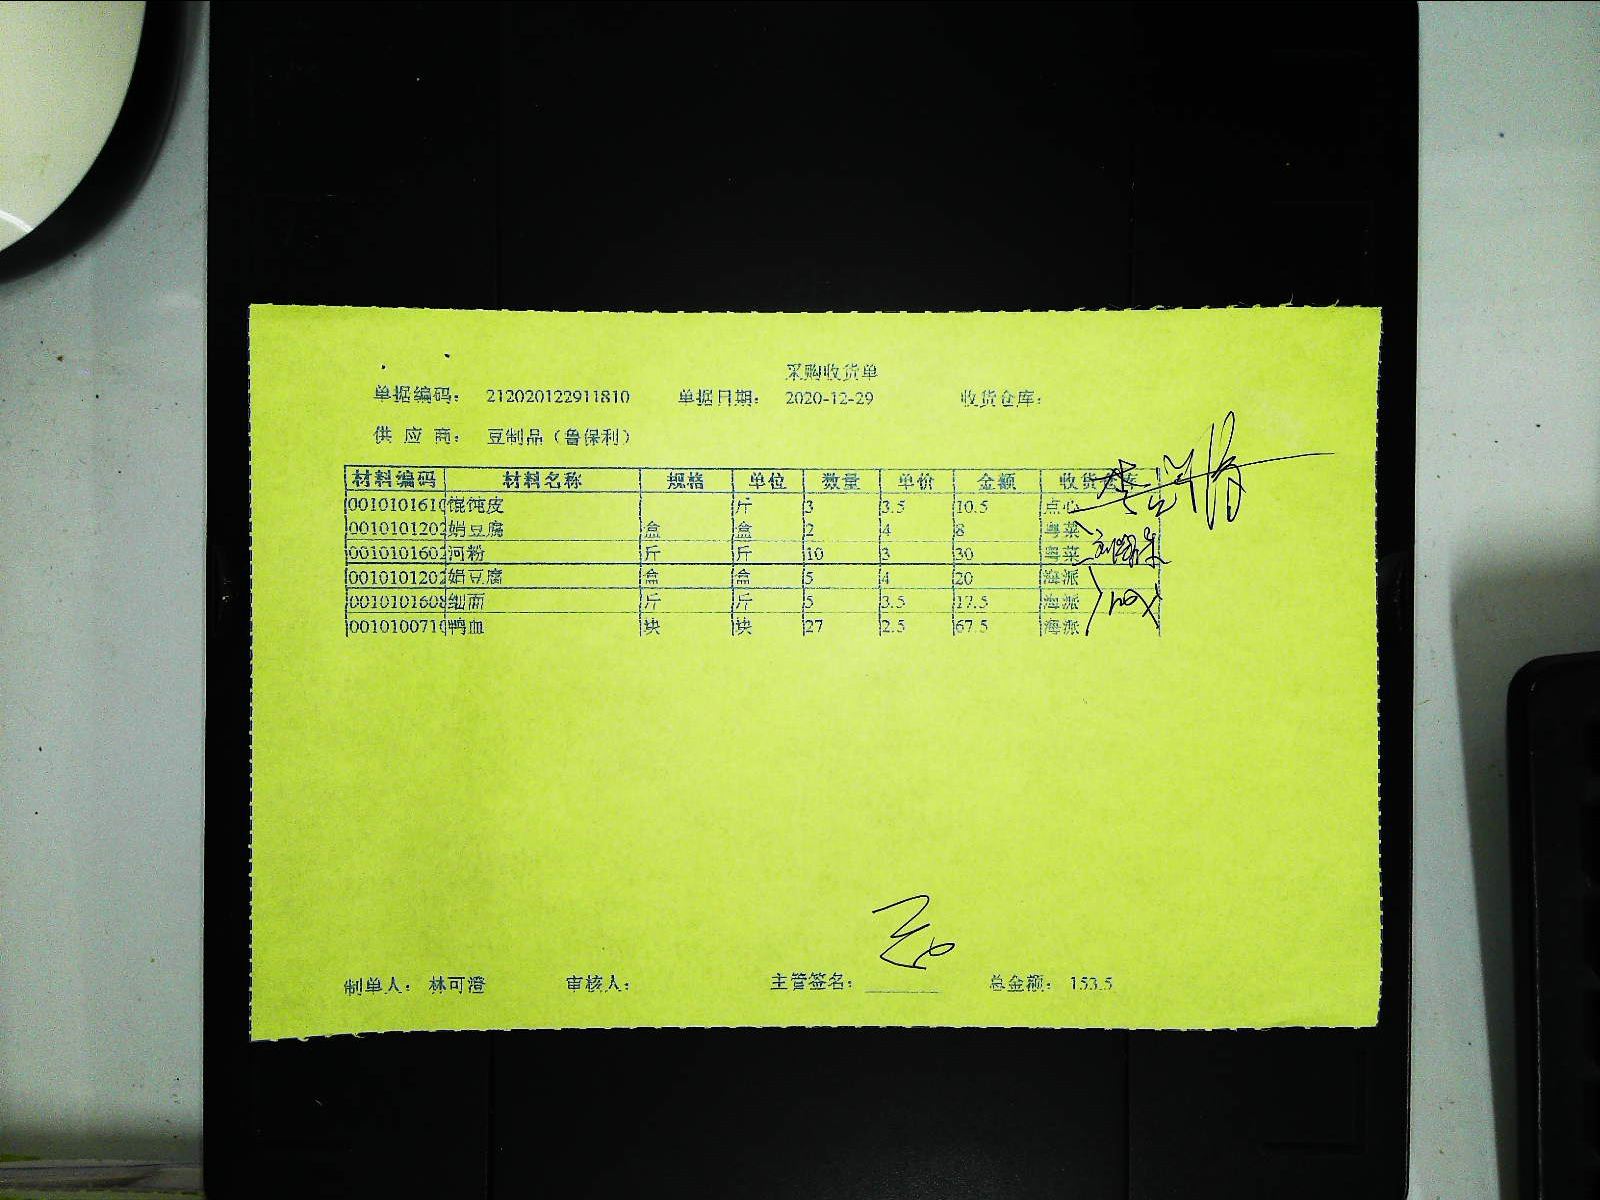 采购收货单
单据编码： 212020122911810 单据日期： 2020-12-29 收货仓库：
供 应 商： 豆制品（鲁保利）
材料编码 材料名称 规格 单位 数量 单价 金额 收货仓库
0010101610 馄饨皮 斤 3 3.5 10.5 点心
0010101202 娟豆腐 盒 盒 2 4 8 粤菜
0010101602 河粉 斤 斤 10 3 30 粤菜
0010101202 娟豆腐 盒 盒 5 4 20 海派
0010101608 细面 斤 斤 5 3.5 17.5 海派
0010100710 鸭血 块 块 27 2.5 67.5 海派
制单人： 林可澄 审核人： 主管签名： 总金额： 153.5